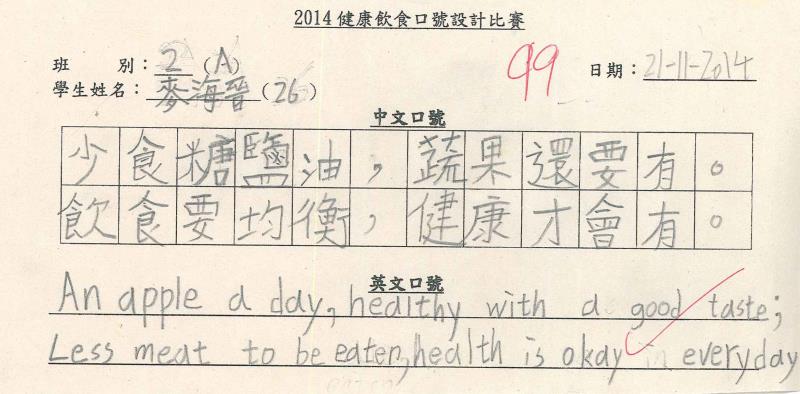 2014 健康飲食口號設計比賽
班 別：2（A） 99 日期：21-11-2014
學生姓名：麥海晉（26）
中文口號
少食糖鹽油，蔬果還要有。
飲食要均衡，健康才會有。
英文口號
An apple a day, healthy with a good taste;
Less meat to be eaten, health is okay in everyday